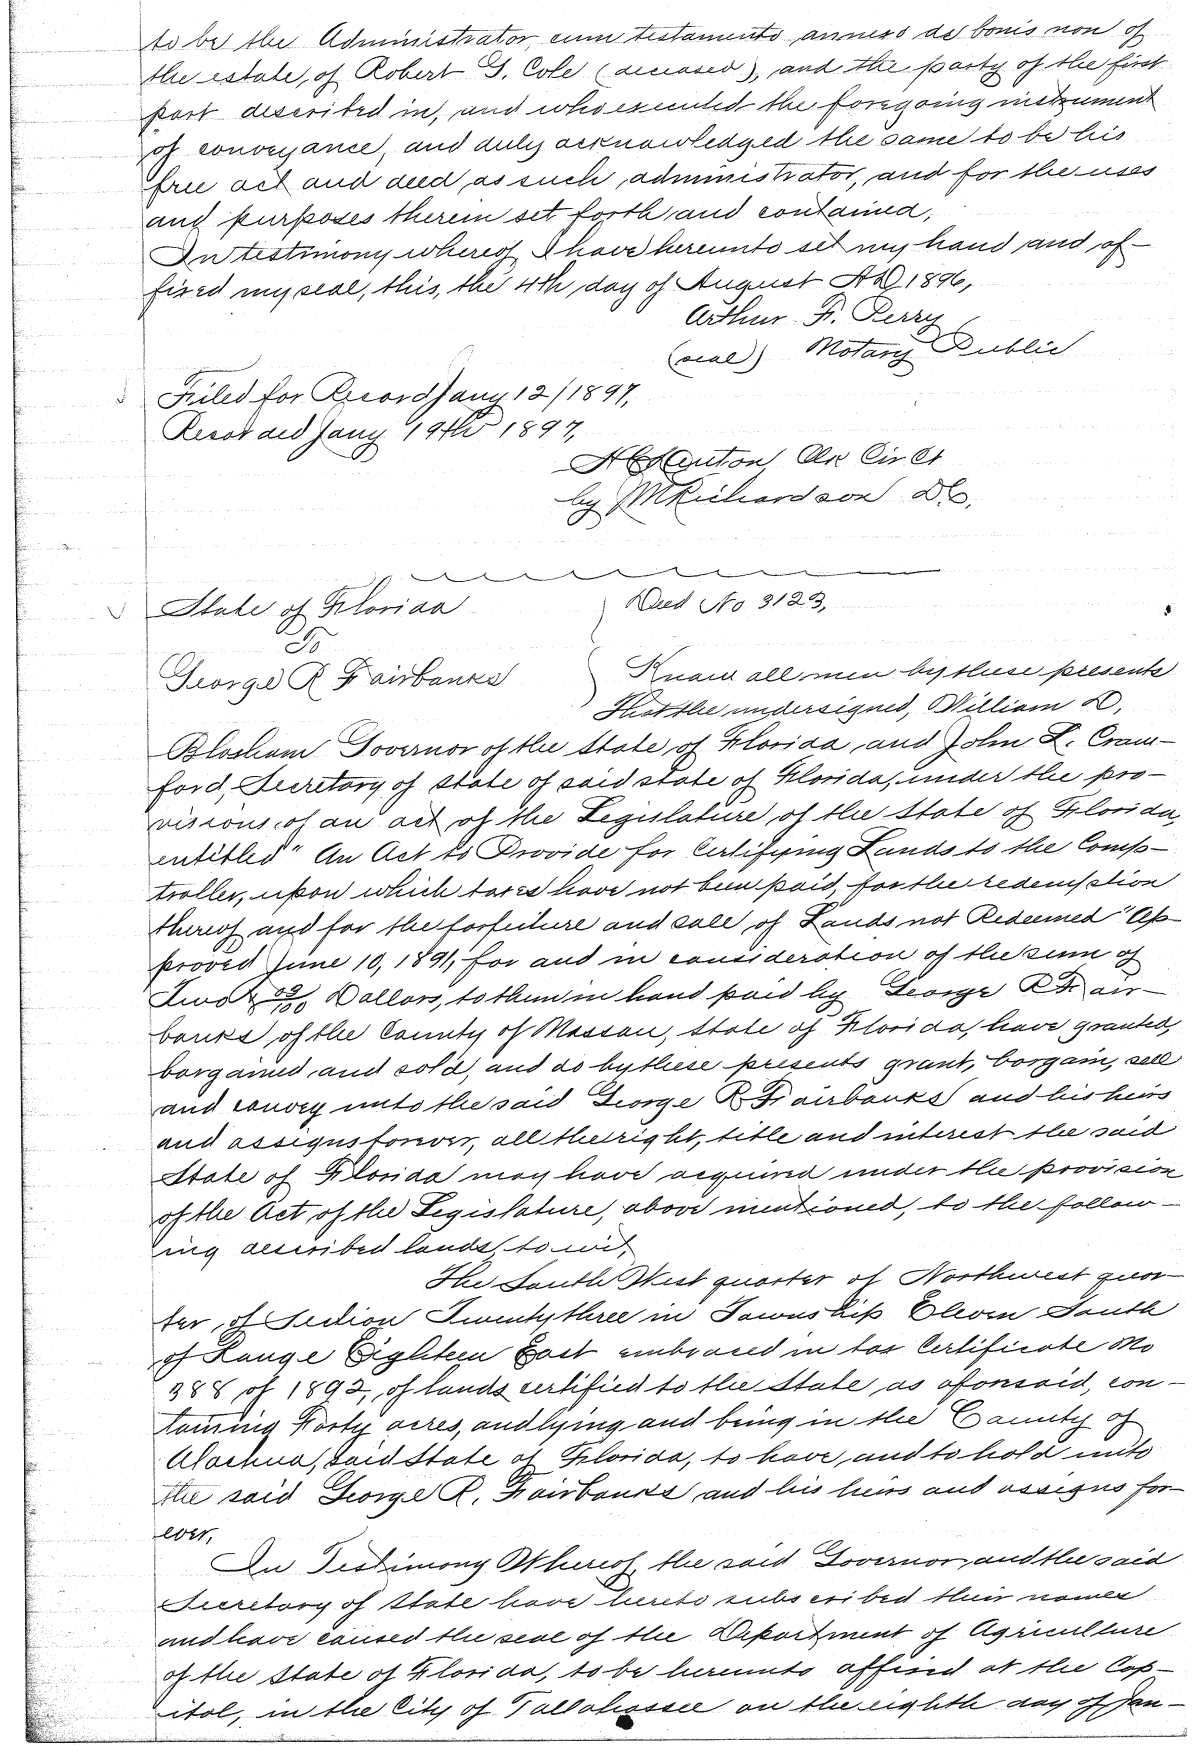 to be the Administrator, cum testamento annexo de bonis non of
the estate, of Robert G. Cole (deceased), and the party of the first
part described in, and who executed the foregoing instrument
of conveyance, and duly acknowledged the same to be his
free act and deed, as such administrator, and for the uses
and purposes therein set forth and contained,
In testimony whereof I have hereunto set my hand and af-
fixed my seal, this, the 4th day of August AD 1896,
Arthur F. Perry
(seal) Notary Public
Filed for Record Jany 12/1897,
Recorded Jany 19th 1897,
Clk Circt
by Richardson DC,
State of Florida
Deed No 3123,
To
George R Fairbanks
Know all men by these presents
That the undersigned, William D,
Bloxham Governor of the State of Florida and John L. Craw-
ford, Secretary of state of said state of Florida, under the pro-
visions, of an act of the Legislature of the State of Florida,
entitled "An Act to Provide for Certifying Lands to the Comp-
troller, upon which taxes have not been paid, for the redemption
thereof and for the forfeiture and sale of Lands not Redeemed" Ap-
proved June 10, 1891, for and in consideration of the sum of
Two & 09/100 Dollars, to them in hand paid by George R Fair-
banks, of the County of Nassau, State of Florida, have granted,
bargained and sold, and do by these presents grant, bargain, sell
and convey unto the said George R Fairbanks and his heirs
and assigns forever, all the right, title and interest the said
State of Florida may have acquired under the provision
of the Act of the Legislature, above mentioned, to the follow-
ing described lands, to wit,
The South West quarter of Northwest quar-
ter, of Section Twenty three in Township Eleven South
of Range Eighteen East embraced in tax Certificate No
388 of 1892, of lands certified to the State as aforesaid, con-
taining Forty acres, and lying and being in the County of
Alachua, said State of Florida, to have, and to hold unto
the said George R. Fairbanks and his heirs and assigns for-
ever,
In Testimony Whereof, the said Governor, and the said
Secretary of State have hereto subscribed their names
and have caused the seal of the Department of Agriculture
of the State of Florida, to be hereunto affixed at the Cap-
itol, in the City of Tallahassee on the eighth day of Jan-